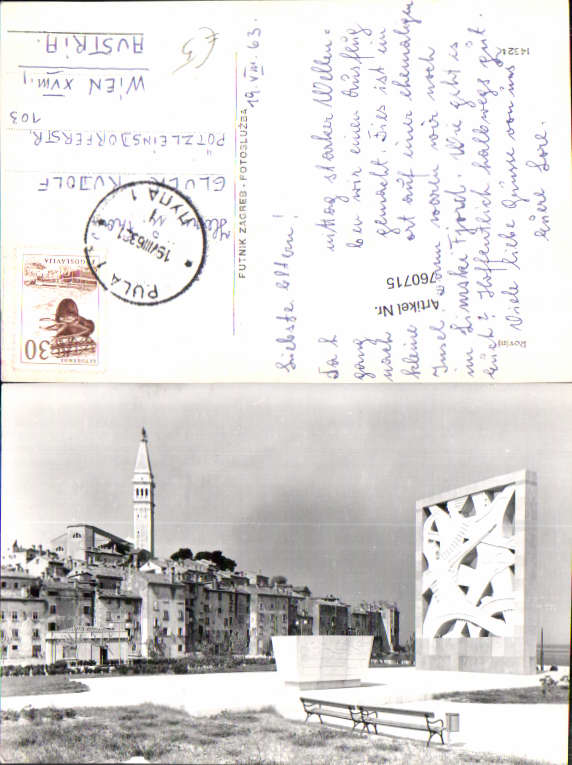 Liebste Eltern!
starker Wellen=
gang wir einen Ausflug
nach gemacht. Dies ist ein
kleine ort auf einer ehemaligen
Insel. Dann waren wir noch
im Limski Fjord. Wie geht es
euch? Hoffentlich halbwegs gut.
Viele liebe Grüsse von uns
Eure Lore.
19. VIII. 63.
PUTNIK ZAGREB - FOTOSLUŽBA
GLUECK RUDOLF
PÖTZLEINSDORFERSTR.
103
WIEN XVIII.
AUSTRIA.
PULA 1
ПУЛА 1
JUGOSLAVIJA
30
Rovinj
Artikel Nr.
760715
14324